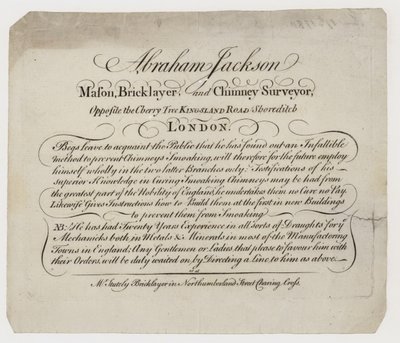 Abraham Jackson
Mason, Bricklayer, and Chimney Surveyor,
Opposite the Cherry Tree KINGSLAND ROAD Shoreditch
LONDON.
Begs leave to acquaint the Public that he has found out an Infallible
Method to prevent Chimneys Smoaking, will therefore for the future employ
himself wholly in the two latter Branches only; Testifications of his
superior Knowledge in Curing Smoaking Chimneys may be had from
the greatest part of the Nobility of England, he undertakes them no Cure no Pay.
Likewise Gives Instructions how to Build them at the first in new Buildings
to prevent them from Smoaking
NB: He has had Twenty Years Experience in all sorts of Draughts for ye
Mechanicks both in Metals & Minerals in most of the Manufacturing
Towns in England; Any Gentlemen or Ladies that please to favour him with
their Orders, will be duly waited on by Directing a Line to him as above
Mr. Stutely Bricklayer in Northumberland Street Charing Cross.